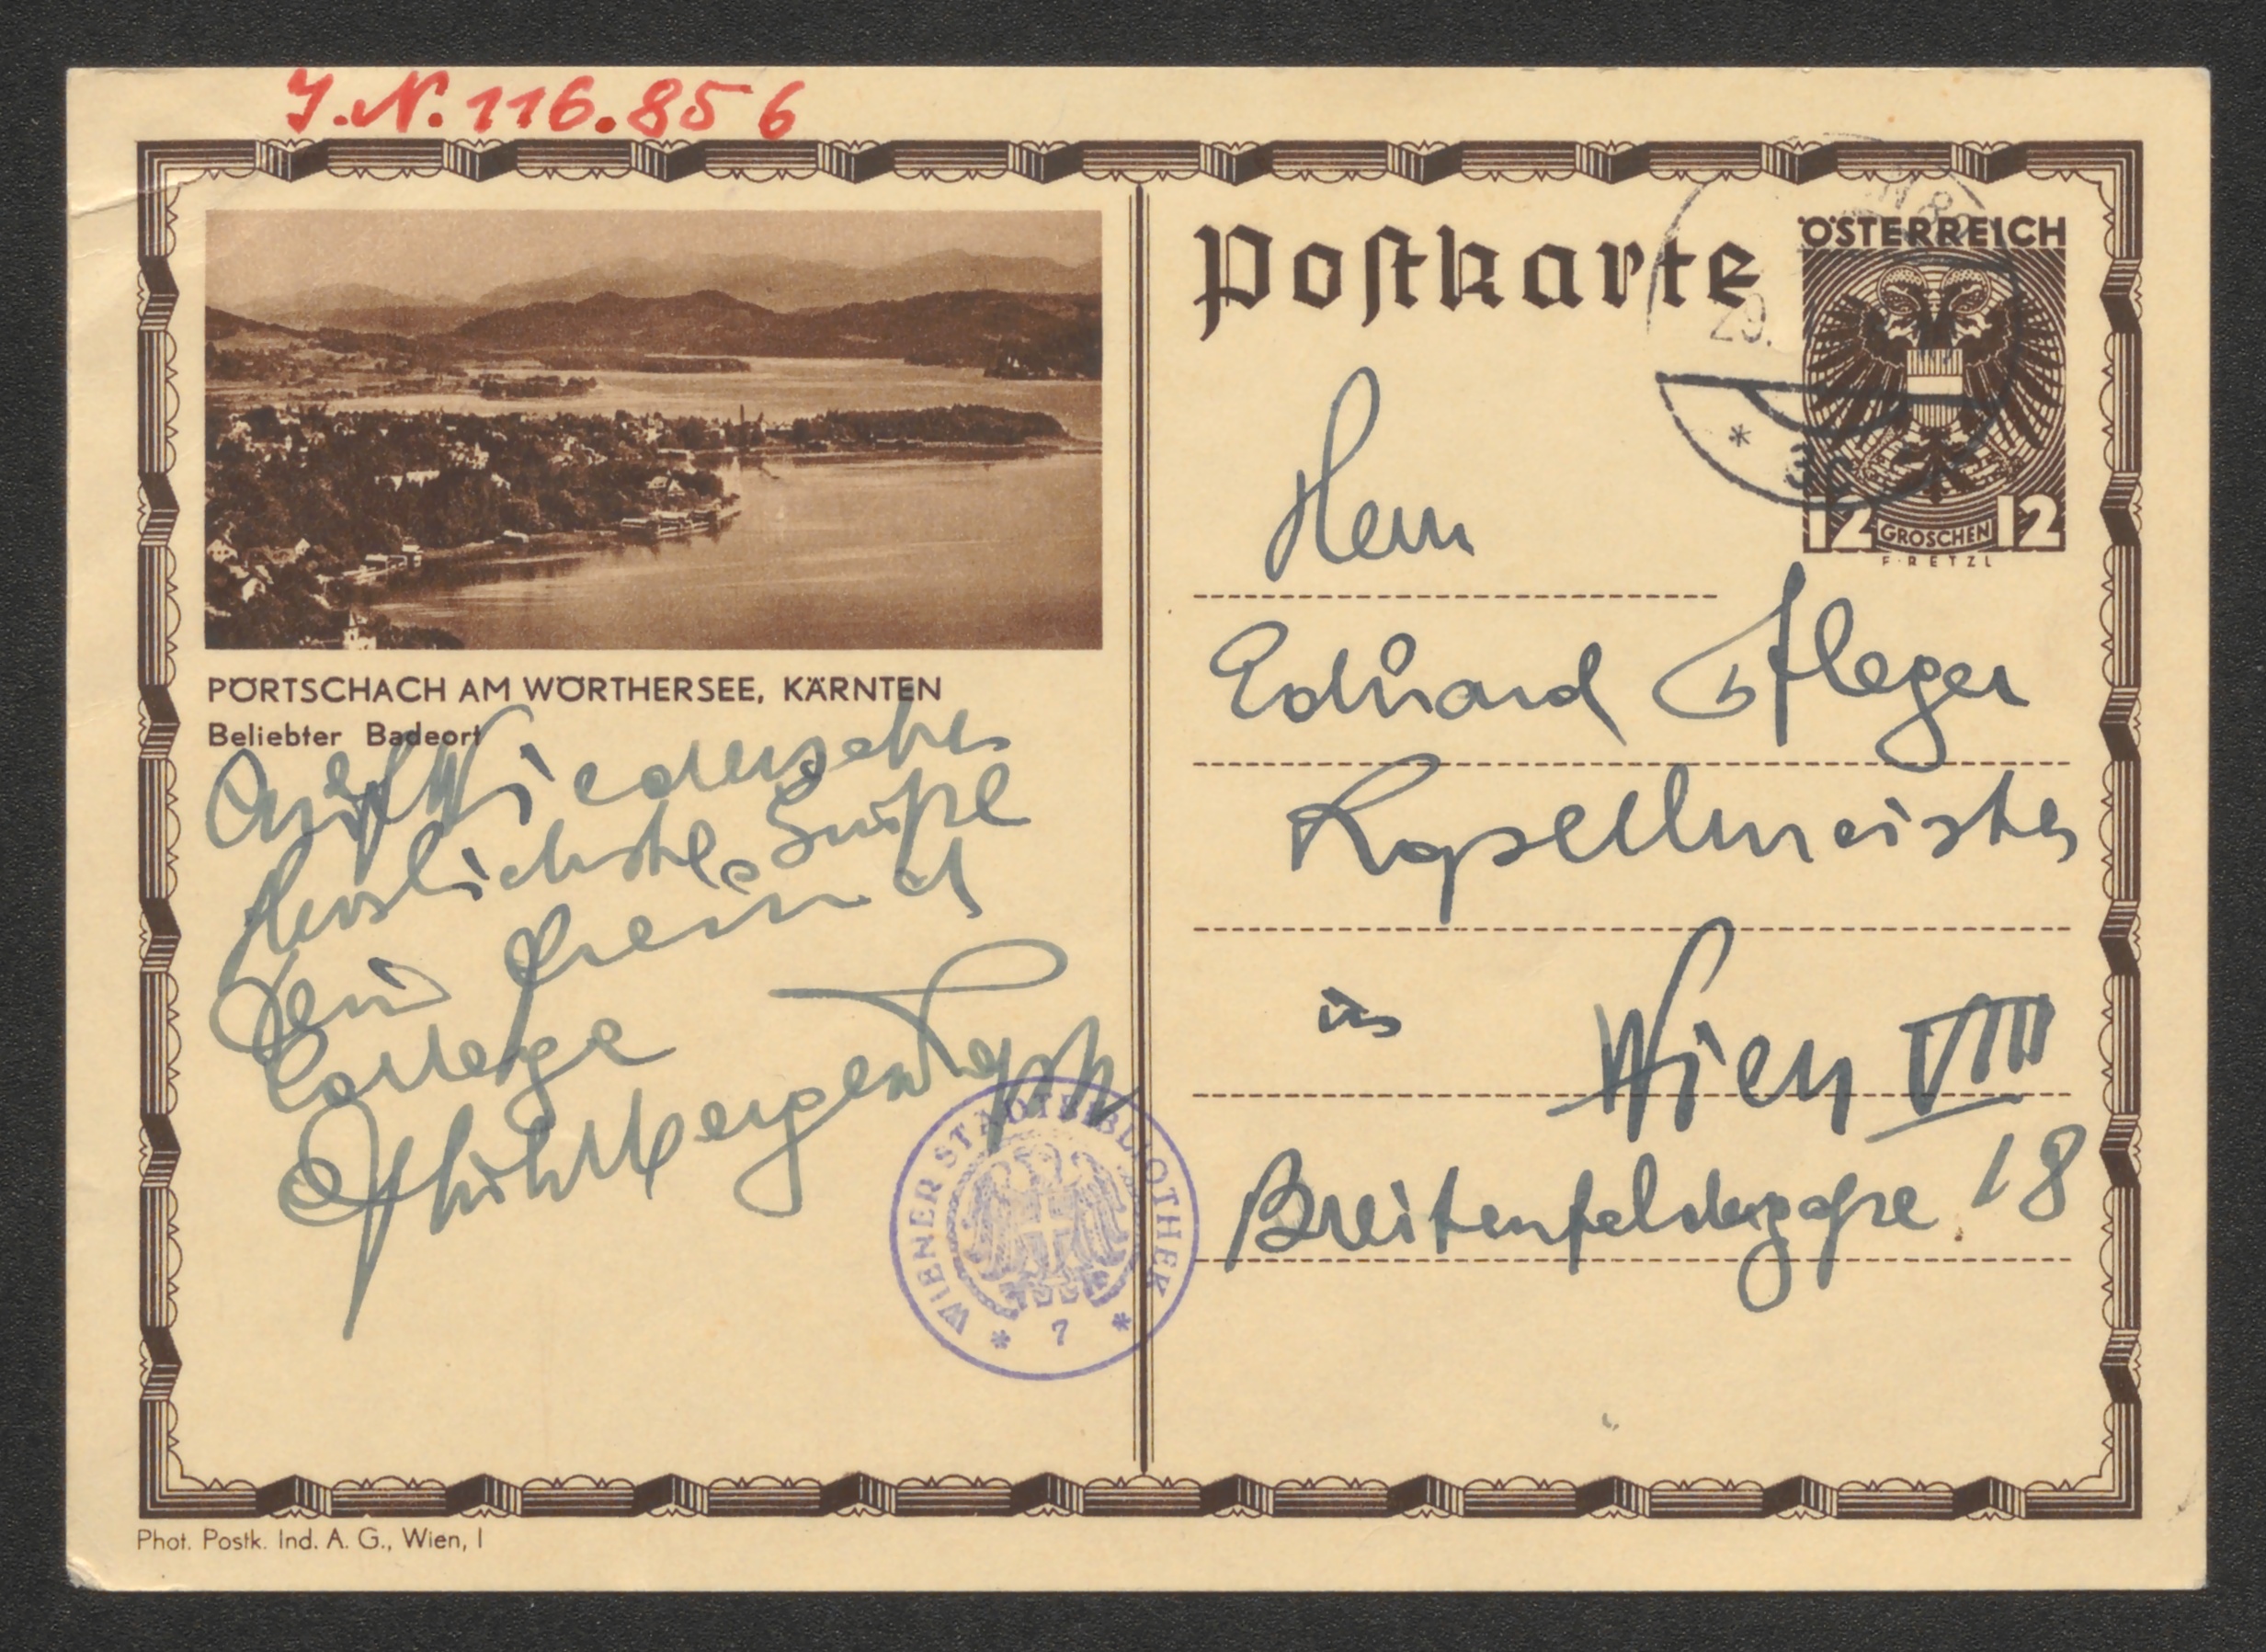 J.N. 116.856
PÖRTSCHACH AM WÖRTHERSEE, KÄRNTEN
Beliebter Badeort
Auf Wiedersehen
Herzlichste Grüße
Dein Freund
College
Mühlberger
Phot. Postk. Ind. A. G., Wien, I
WIENER STADTBIBLIOTHEK
* 7 *
Postkarte
ÖSTERREICH
12 GROSCHEN 12
F·RETZL
29.
Herrn
Eduard Pfleger
Kapellmeister
in Wien VIII
Breitenfeldergasse 18